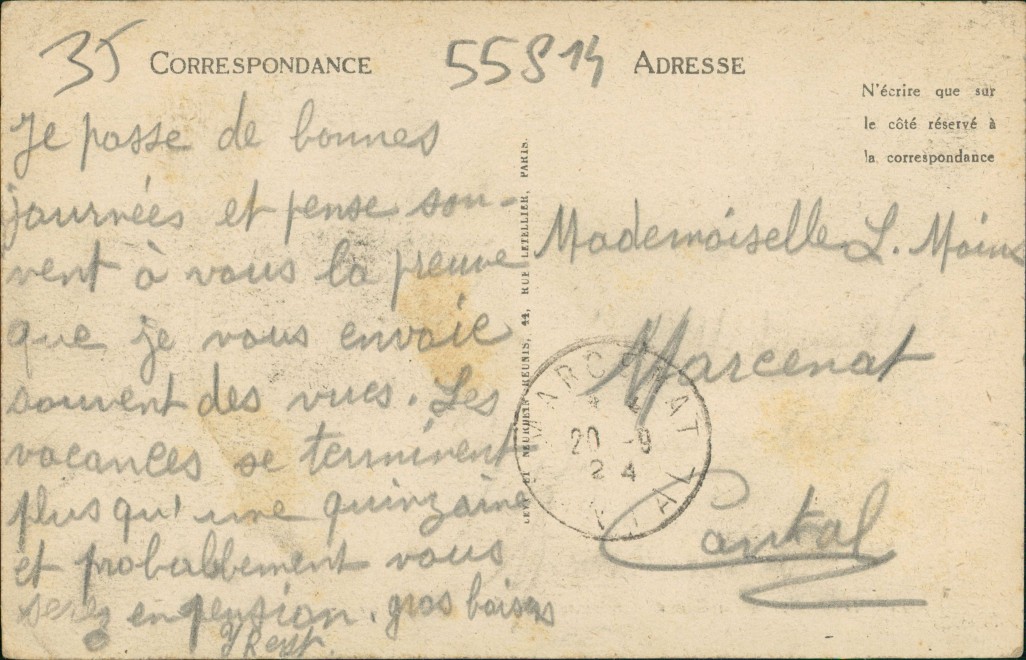 35
CORRESPONDANCE
55814
ADRESSE
N'écrire que sur
le côté réservé à
la correspondance
Je passe de bonnes
journées et pense sou-
vent à vous la preuve
que je vous envoie
souvent des vues. Les
vacances se terminent
plus qu'une quinzaine
et probablement vous
serez en pension. gros baisers
LEVY ET NEURDEIN RÉUNIS, 44, RUE LETELLIER, PARIS.
Mademoiselle L. Moins
Marcenat
Cantal
MARCENAT
20 -9
24
CANTAL